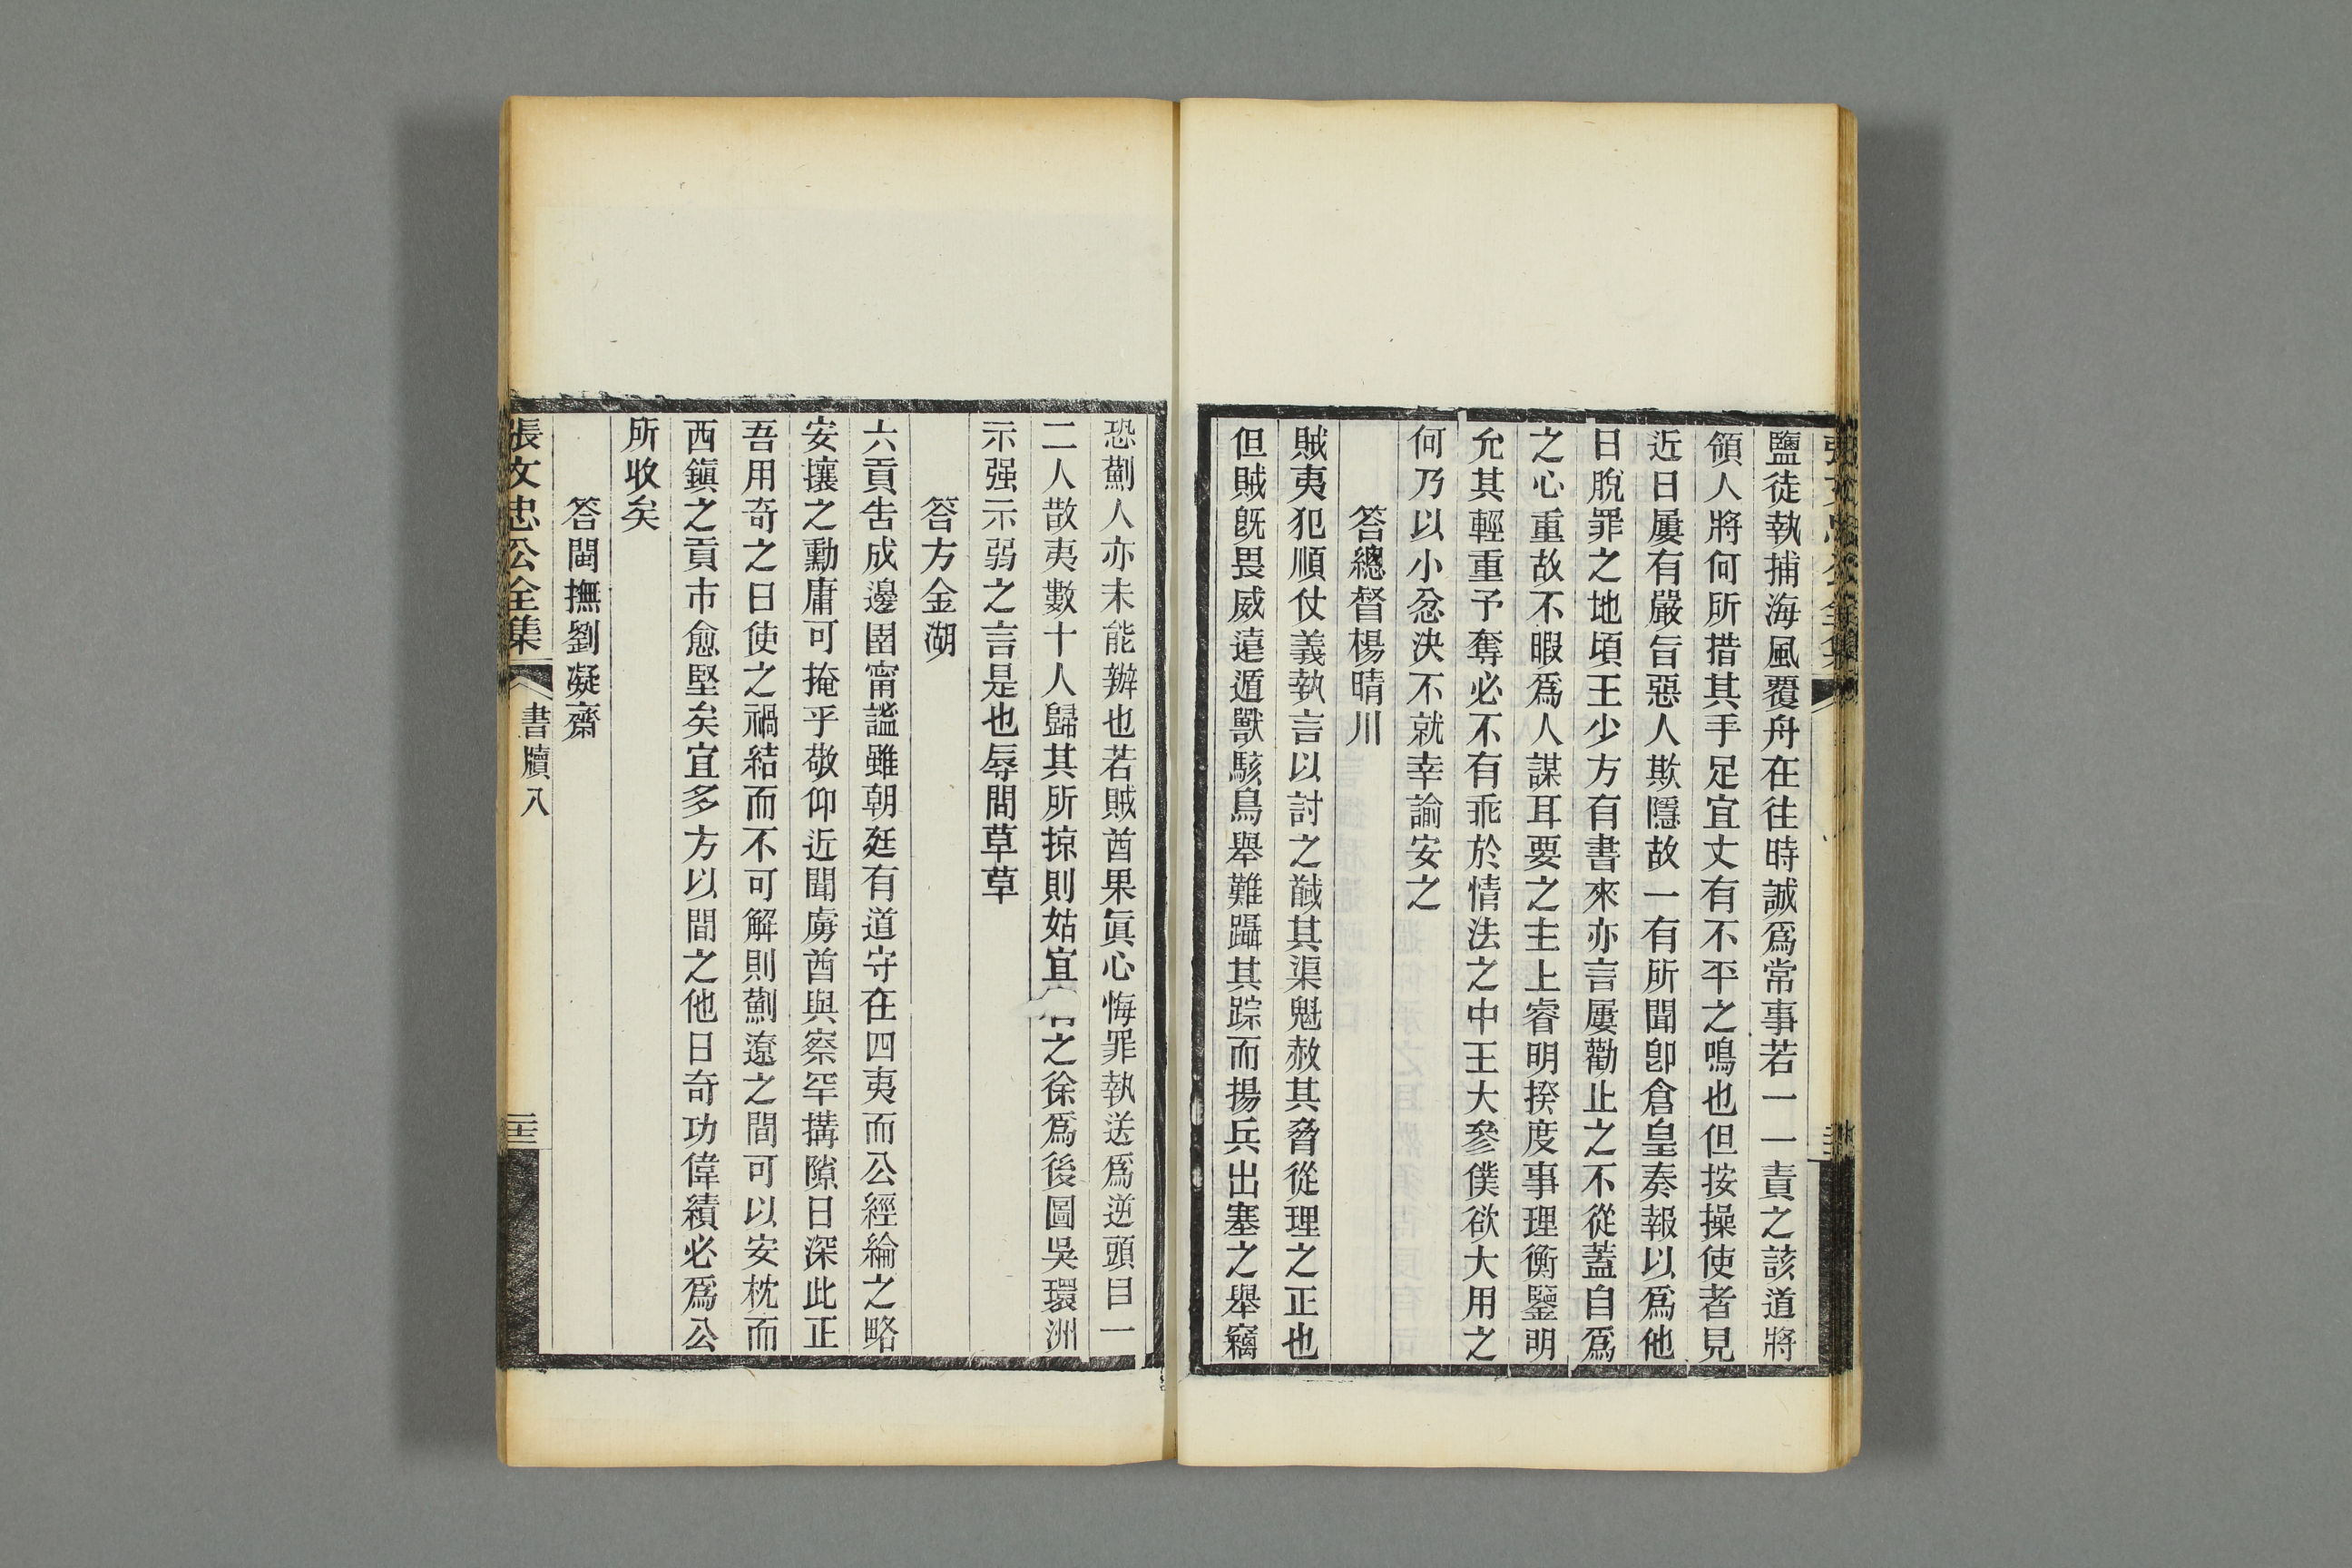 鹽徒執捕海風覆舟在往時誠爲常事若一一責之該道將
領人將何所措其手足宜丈有不平之鳴也但按操使者見
近日屢有嚴旨惡人欺隱故一有所聞卽倉皇奏報以爲他
日脫罪之地頃王少方有書來亦言屢勸止之不從蓋自爲
之心重故不暇爲人謀耳要之主上睿明揆度事理衡鑒明
允其輕重予奪必不有乖於情法之中王大參僕欲大用之
何乃以小忿決不就幸諭安之
答總督楊晴川
賊夷犯順仗義執言以討之馘其渠魁赦其脅從理之正也
但賊旣畏威遠遁獸駭鳥舉難躡其踪而揚兵出塞之舉竊
恐薊人亦未能辦也若賊酋果眞心悔罪執送爲逆頭目一
二人散夷數十人歸其所掠則姑宜之徐爲後圖吳環洲
示强示弱之言是也辱間草草
答方金湖
六貢告成邊圉甯謐雖朝廷有道守在四夷而公經綸之略
安攘之勳庸可掩乎敬仰近聞虜酋與察罕搆隙日深此正
吾用奇之日使之禍結而不可解則薊遼之間可以安枕而
西鎭之貢市愈堅矣宜多方以間之他日奇功偉績必爲公
所收矣
答閩撫劉凝齋
張文忠公全集 書牘八